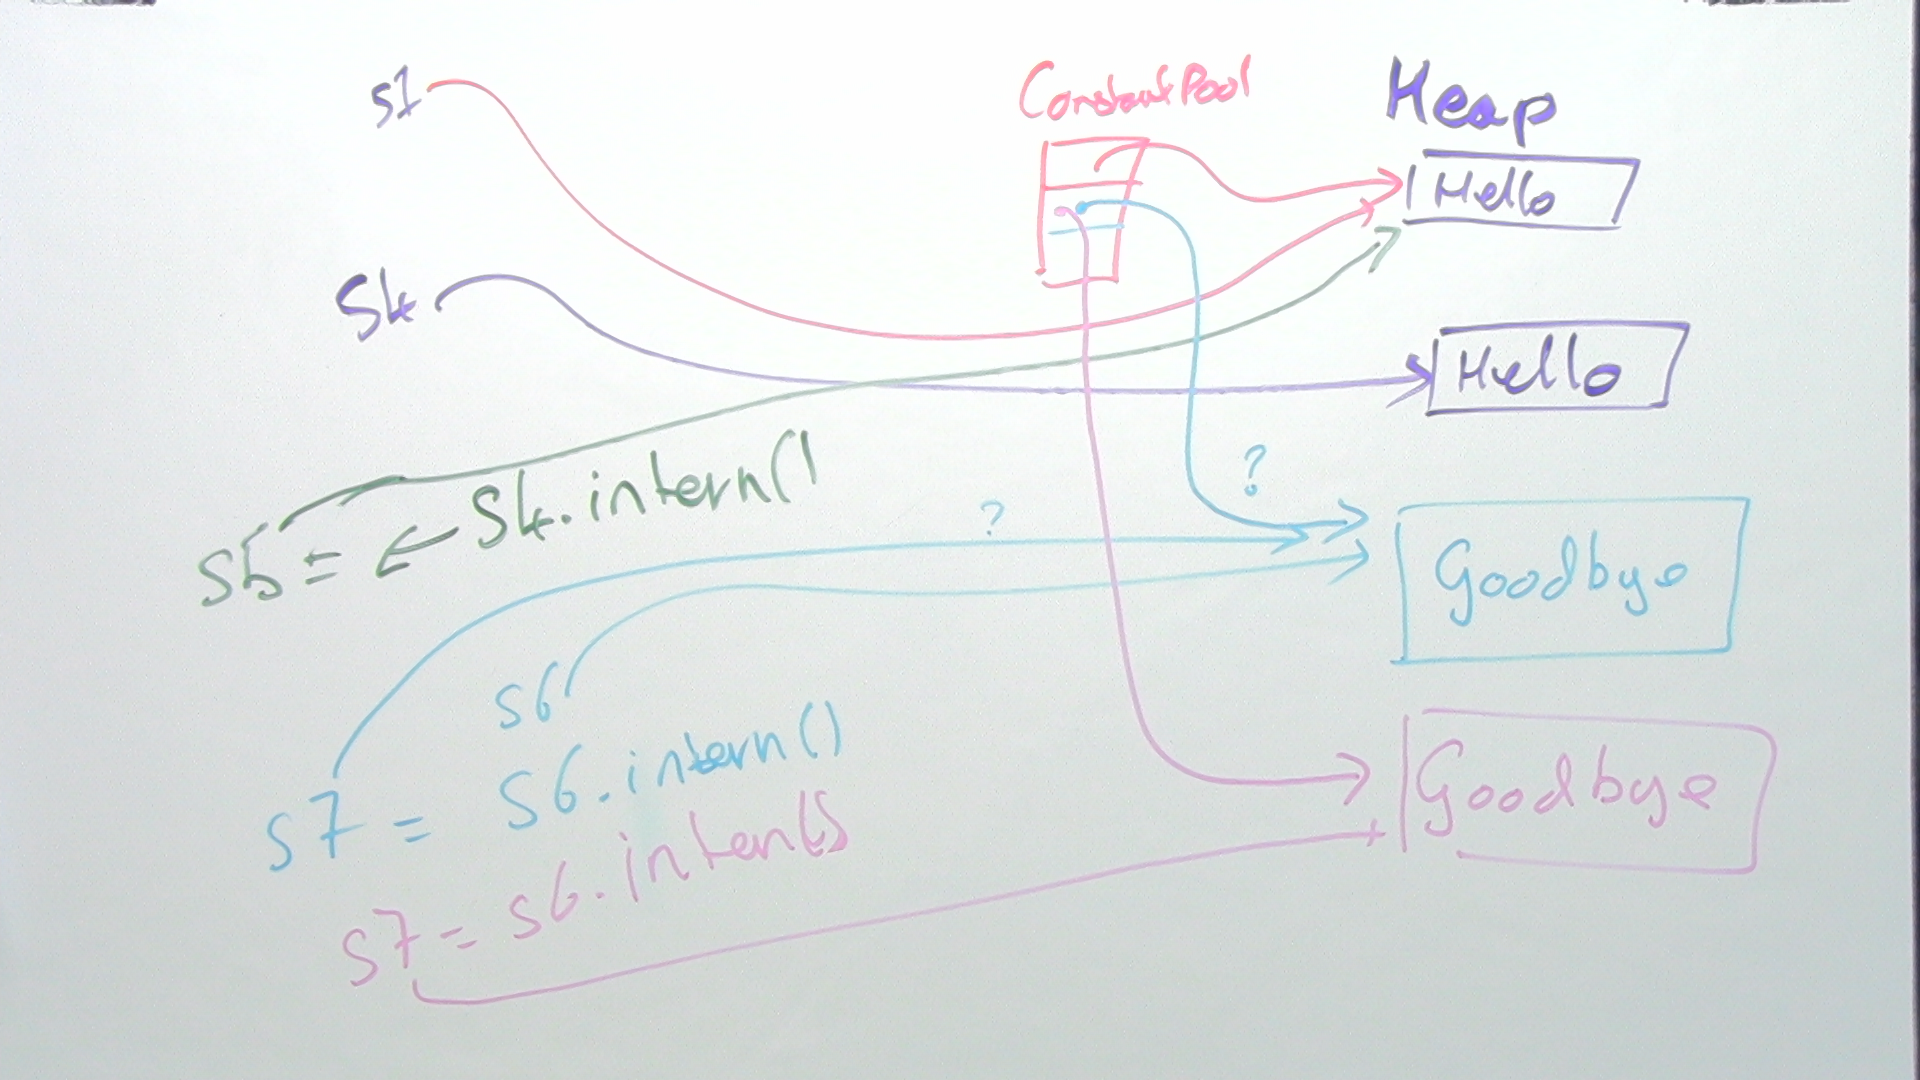 s1
Constant Pool
Heap
Hello
S4
Hello
S5 = ← S4.intern()
?
?
Goodbye
s6
s7 = s6.intern()
Goodbye
s7 = s6.intern()